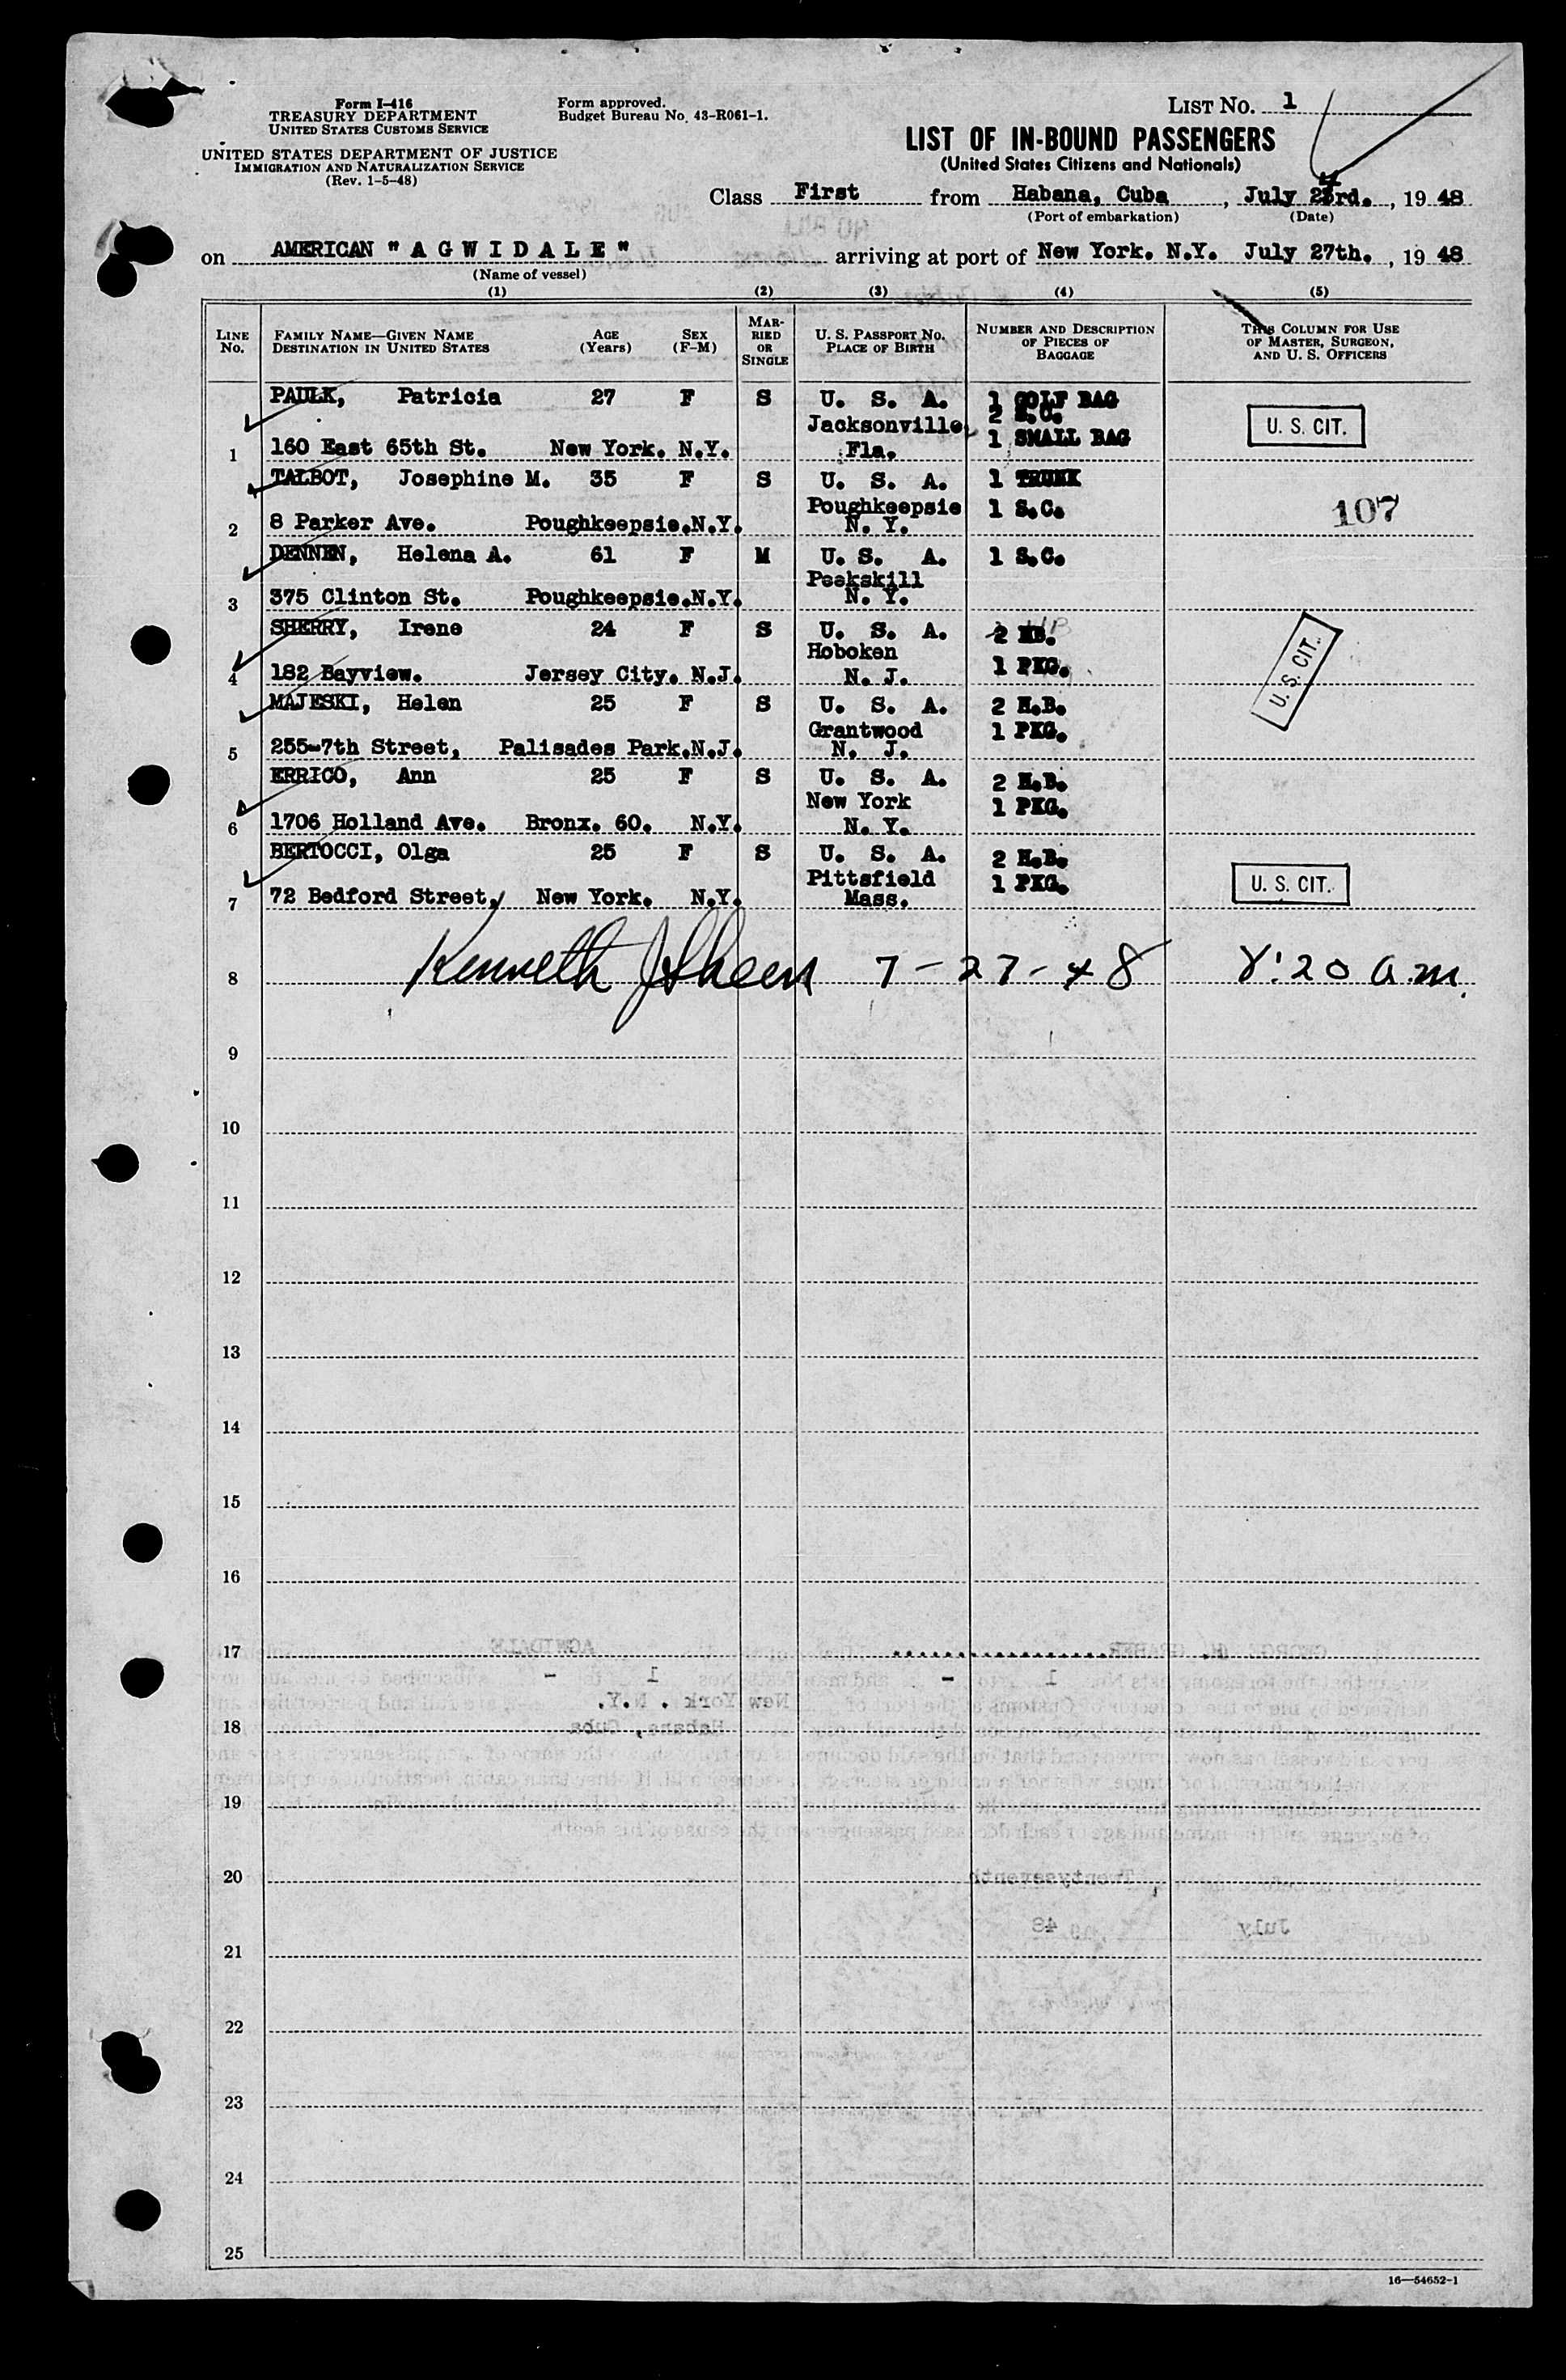 Form I-416
TREASURY DEPARTMENT
UNITED STATES CUSTOMS SERVICE
UNITED STATES DEPARTMENT OF JUSTICE
IMMIGRATION AND NATURALIZATION SERVICE
(Rev. 1-5-48)
Form approved.
Budget Bureau No. 43-R061-1.
LIST No. 1
LIST OF IN-BOUND PASSENGERS
(United States Citizens and Nationals)
Class First from Habana, Cuba, July 23rd., 1948
(Port of embarkation) (Date)
on AMERICAN "AGWIDALE" arriving at port of New York. N.Y. July 27th., 1948
(Name of vessel)
(1) (2) (3) (4) (5)
LINE No. FAMILY NAME—GIVEN NAME DESTINATION IN UNITED STATES AGE (Years) SEX (F-M) MARRIED OR SINGLE U. S. PASSPORT No. PLACE OF BIRTH NUMBER AND DESCRIPTION OF PIECES OF BAGGAGE THIS COLUMN FOR USE OF MASTER, SURGEON, AND U. S. OFFICERS
PAULK, Patricia 27 F S U. S. A. 1 GOLF BAG
2 S.C.
Jacksonville U. S. CIT.
1 160 East 65th St. New York. N.Y. Fla. 1 SMALL BAG
TALBOT, Josephine M. 35 F S U. S. A. 1 TRUNK
Poughkeepsie 1 S.C. 107
2 8 Parker Ave. Poughkeepsie.N.Y. N. Y.
DENNEN, Helena A. 61 F M U. S. A. 1 S.C.
Peekskill
3 375 Clinton St. Poughkeepsie.N.Y. N. Y.
SHERRY, Irene 24 F S U. S. A. 2 HB.
Hoboken U. S. CIT.
4 182 Bayview. Jersey City. N.J. N. J. 1 PKG.
MAJESKI, Helen 25 F S U. S. A. 2 H.B.
Grantwood 1 PKG.
5 255-7th Street, Palisades Park.N.J. N. J.
ERRICO, Ann 25 F S U. S. A. 2 H.B.
New York 1 PKG.
6 1706 Holland Ave. Bronx. 60. N.Y. N. Y.
BERTOCCI, Olga 25 F S U. S. A. 2 H.B.
Pittsfield 1 PKG. U. S. CIT.
7 72 Bedford Street, New York. N.Y. Mass.
8 Kenneth J Sheen 7-27-48 8:20 a.m.
9
10
11
12
13
14
15
16
17
18
19
20
21
22
23
24
25
16—54652-1